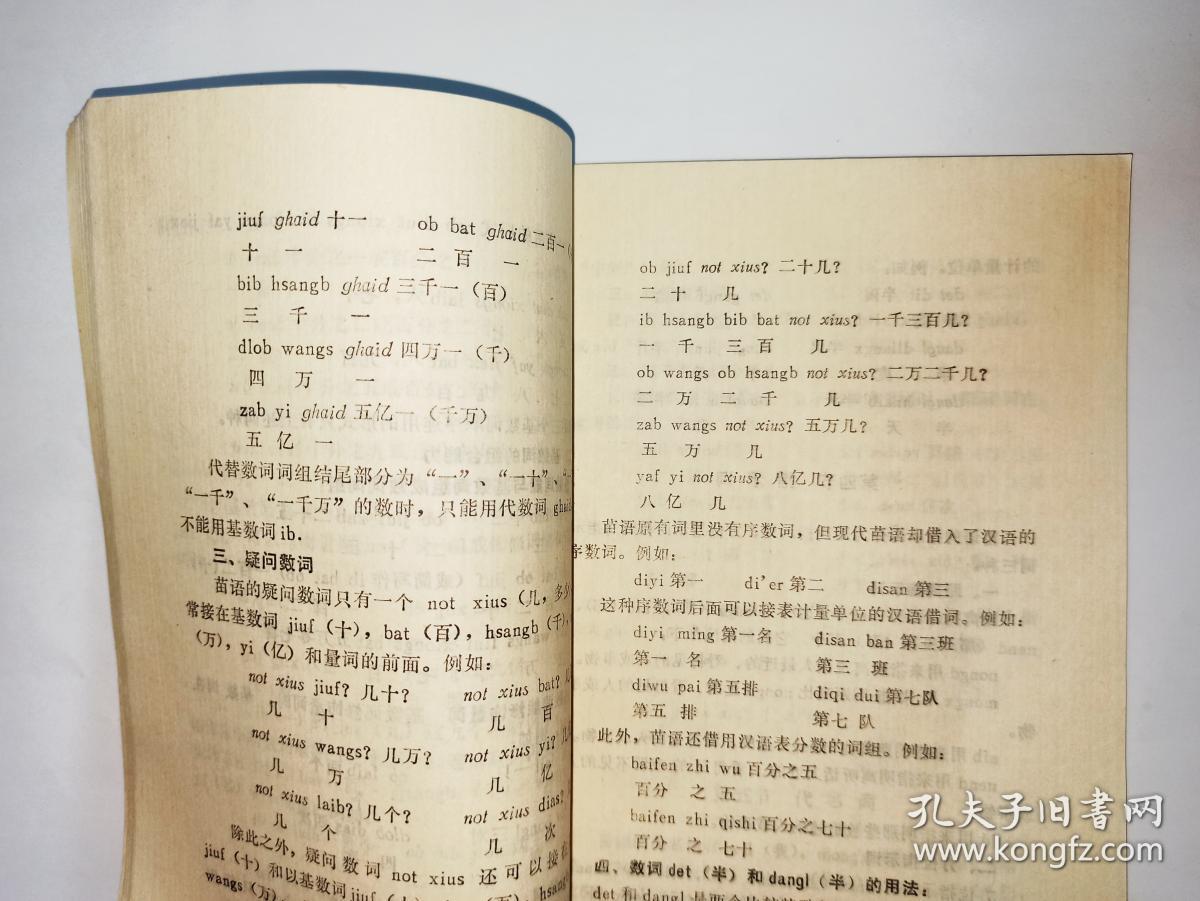 jiuf ghaid 十一 ob bat ghaid 二百一
十 一 二 百 一
bib hsangb ghaid 三千一（百）
三 千 一
dlob wangs ghaid 四万一（千）
四 万 一
zab yi ghaid 五亿一（千万）
五 亿 一
代替数词词组结尾部分为“一”、“一十”、
“一千”、“一千万”的数时，只能用代数词 ghaid
不能用基数词 ib.
三、疑问数词
苗语的疑问数词只有一个 not xius（几，多少
常接在基数词 jiuf（十），bat（百），hsangb（千），
（万），yi（亿）和量词的前面。例如：
not xius jiuf? 几十? not xius bat?
几 十 几 百
not xius wangs? 几万? not xius yi? 几
几 万 几 亿
not xius laib? 几个? not xius dias?
几 个 几 次
除此之外，疑问数词 not xius 还可以接在
jiuf（十）和以基数词 jiuf（十）、 （百）， hsang
wangs（万）、
ob jiuf not xius? 二十几?
二 十 几
ib hsangb bib bat not xius? 一千三百几?
一 千 三 百 几
ob wangs ob hsangb not xius? 二万二千几?
二 万 二 千 几
zab wangs not xius? 五万几?
五 万 几
yaf yi not xius? 八亿几?
八 亿 几
苗语原有词里没有序数词，但现代苗语却借入了汉语的
序数词。例如：
diyi 第一 di'er 第二 disan 第三
这种序数词后面可以接表计量单位的汉语借词。例如：
diyi ming 第一名 disan ban 第三班
第一 名 第三 班
diwu pai 第五排 diqi dui 第七队
第五 排 第七 队
此外，苗语还借用汉语表分数的词组。例如：
baifen zhi wu 百分之五
百分 之 五
baifen zhi qishi 百分之七十
百分 之 七十
四、数词 det（半）和 dangl（半）的用法：
det 和 dangl 是两个
孔夫子旧书网
www.kongfz.com